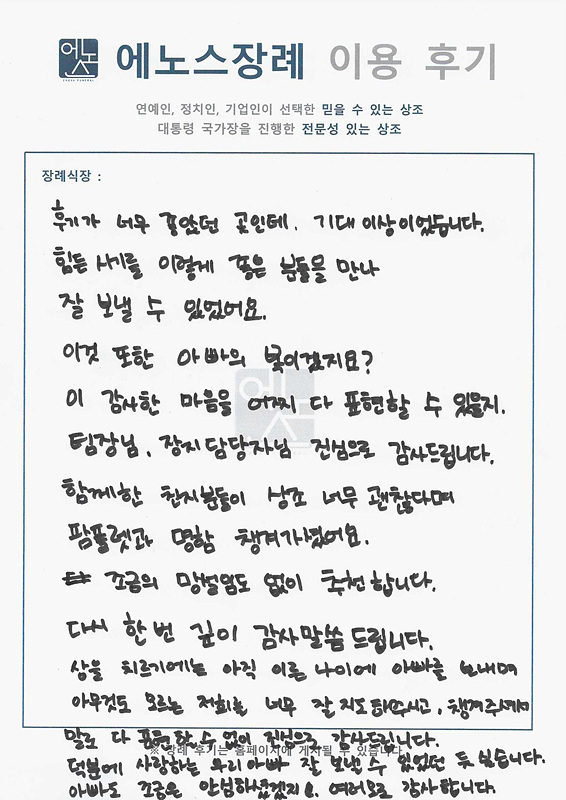 에노스장례 이용 후기
연예인, 정치인, 기업인이 선택한 믿을 수 있는 상조
대통령 국가장을 진행한 전문성 있는 상조
장례식장 :
후기가 너무 좋았던 곳인데, 기대 이상이었습니다.
힘든 시기를 이렇게 좋은 분들을 만나
잘 보낼 수 있었어요.
이것 또한 아빠의 복이겠지요?
이 감사한 마음을 어찌 다 표현할 수 있을지.
팀장님, 장지담당자님 진심으로 감사드립니다.
함께한 친지분들이 상조 너무 괜찮다며
팜플렛과 명함 챙겨가셨어요.
조금의 망설임도 없이 추천합니다.
다시 한번 깊이 감사말씀 드립니다.
상을 치르기에는 아직 이른 나이에 아빠를 보내며
아무것도 모르는 저희를 너무 잘 지도해주시고, 챙겨주셔서
말로 다 표현할 수 없이 진심으로 감사드립니다.
※ 장례 후기는 홈페이지에 게시될 수 있습니다
덕분에 사랑하는 우리아빠 잘 보낼 수 있었던 듯 싶습니다.
아빠도 조금은 안심하셨겠지요. 여러모로 감사합니다.